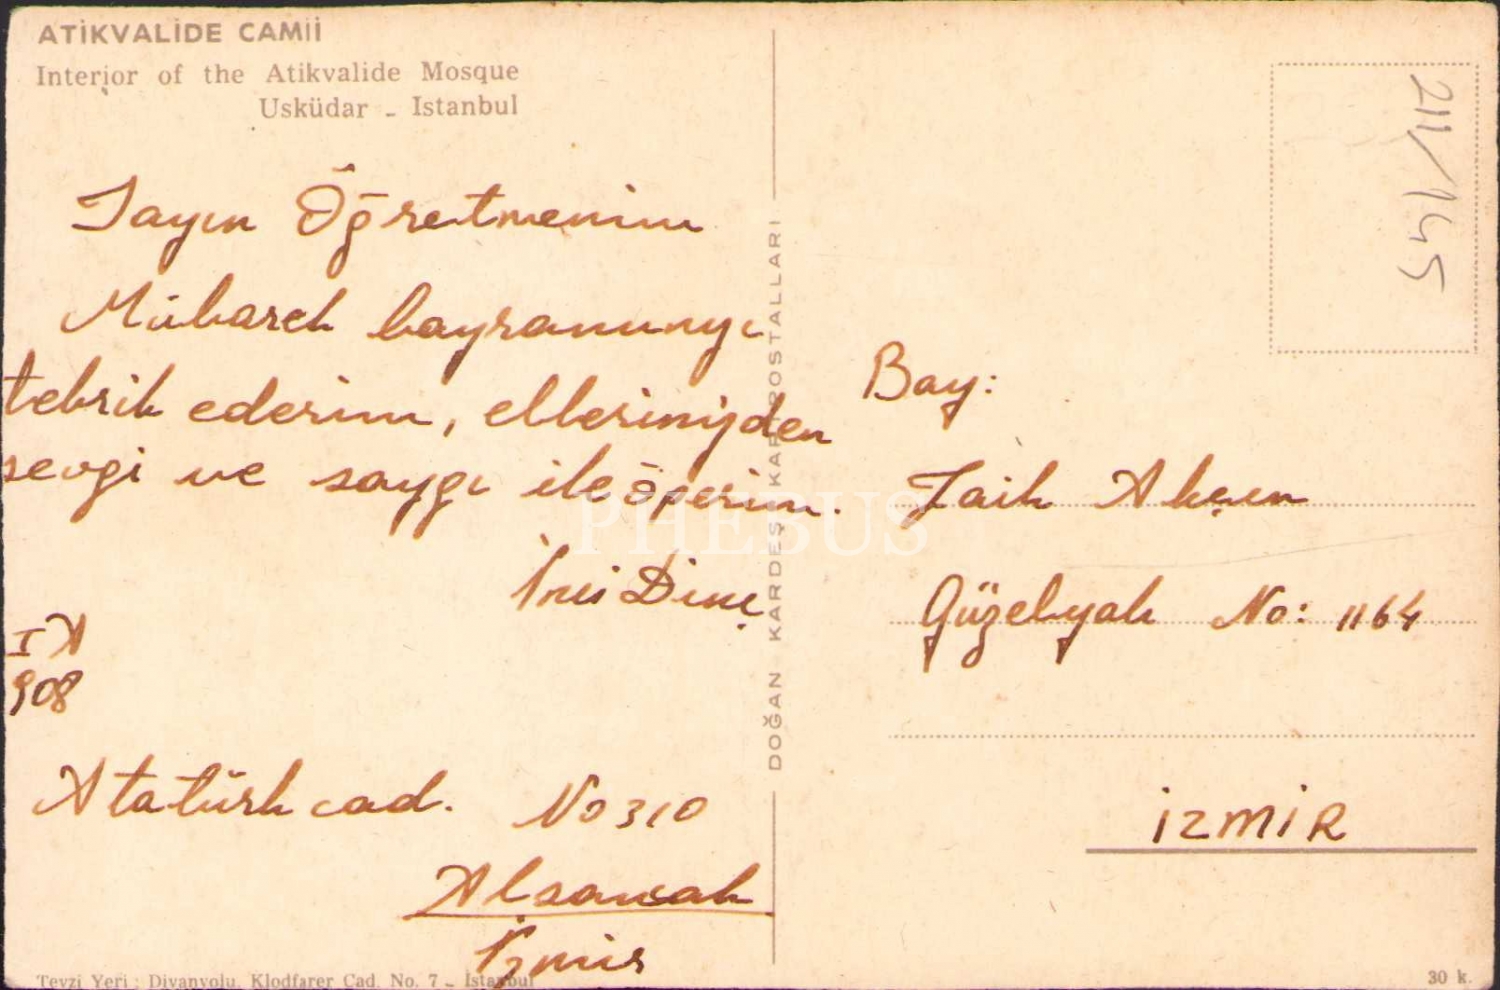 ATİKVALİDE CAMİİ
Interior of the Atikvalide Mosque
Usküdar - Istanbul
Sayın Öğretmenim
Mübarek bayramınızı
tebrik ederim, ellerinizden
sevgi ve saygı ile öperim.
İnci Dinç
908
Atatürk cad. No 310
Alsancak
İzmir
Tevzi Yeri : Divanyolu. Klodfarer Cad. No. 7 - İstanbul
DOĞAN KARDEŞ KARTPOSTALLARI
211/145
Bay:
Faik Akçın
Güzelyalı No: 1164
İZMİR
30 k.
PHEBUS